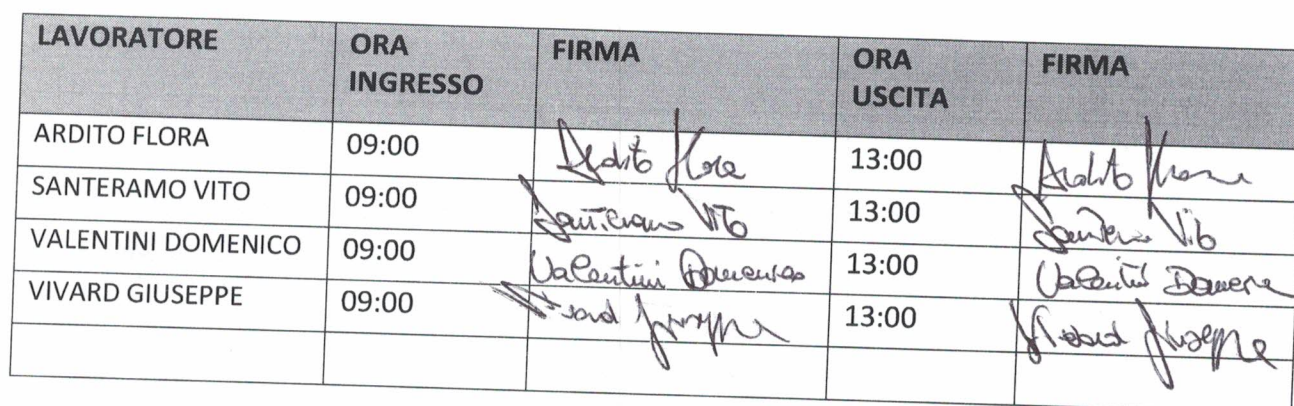 LAVORATORE ORA INGRESSO FIRMA ORA USCITA FIRMA
ARDITO FLORA 09:00 Ardito Flora 13:00 Ardito
SANTERAMO VITO 09:00 Santeramo Vito 13:00 Vito
VALENTINI DOMENICO 09:00 Valentini Domenico 13:00 Valentini
VIVARD GIUSEPPE 09:00 13:00 Giuseppe